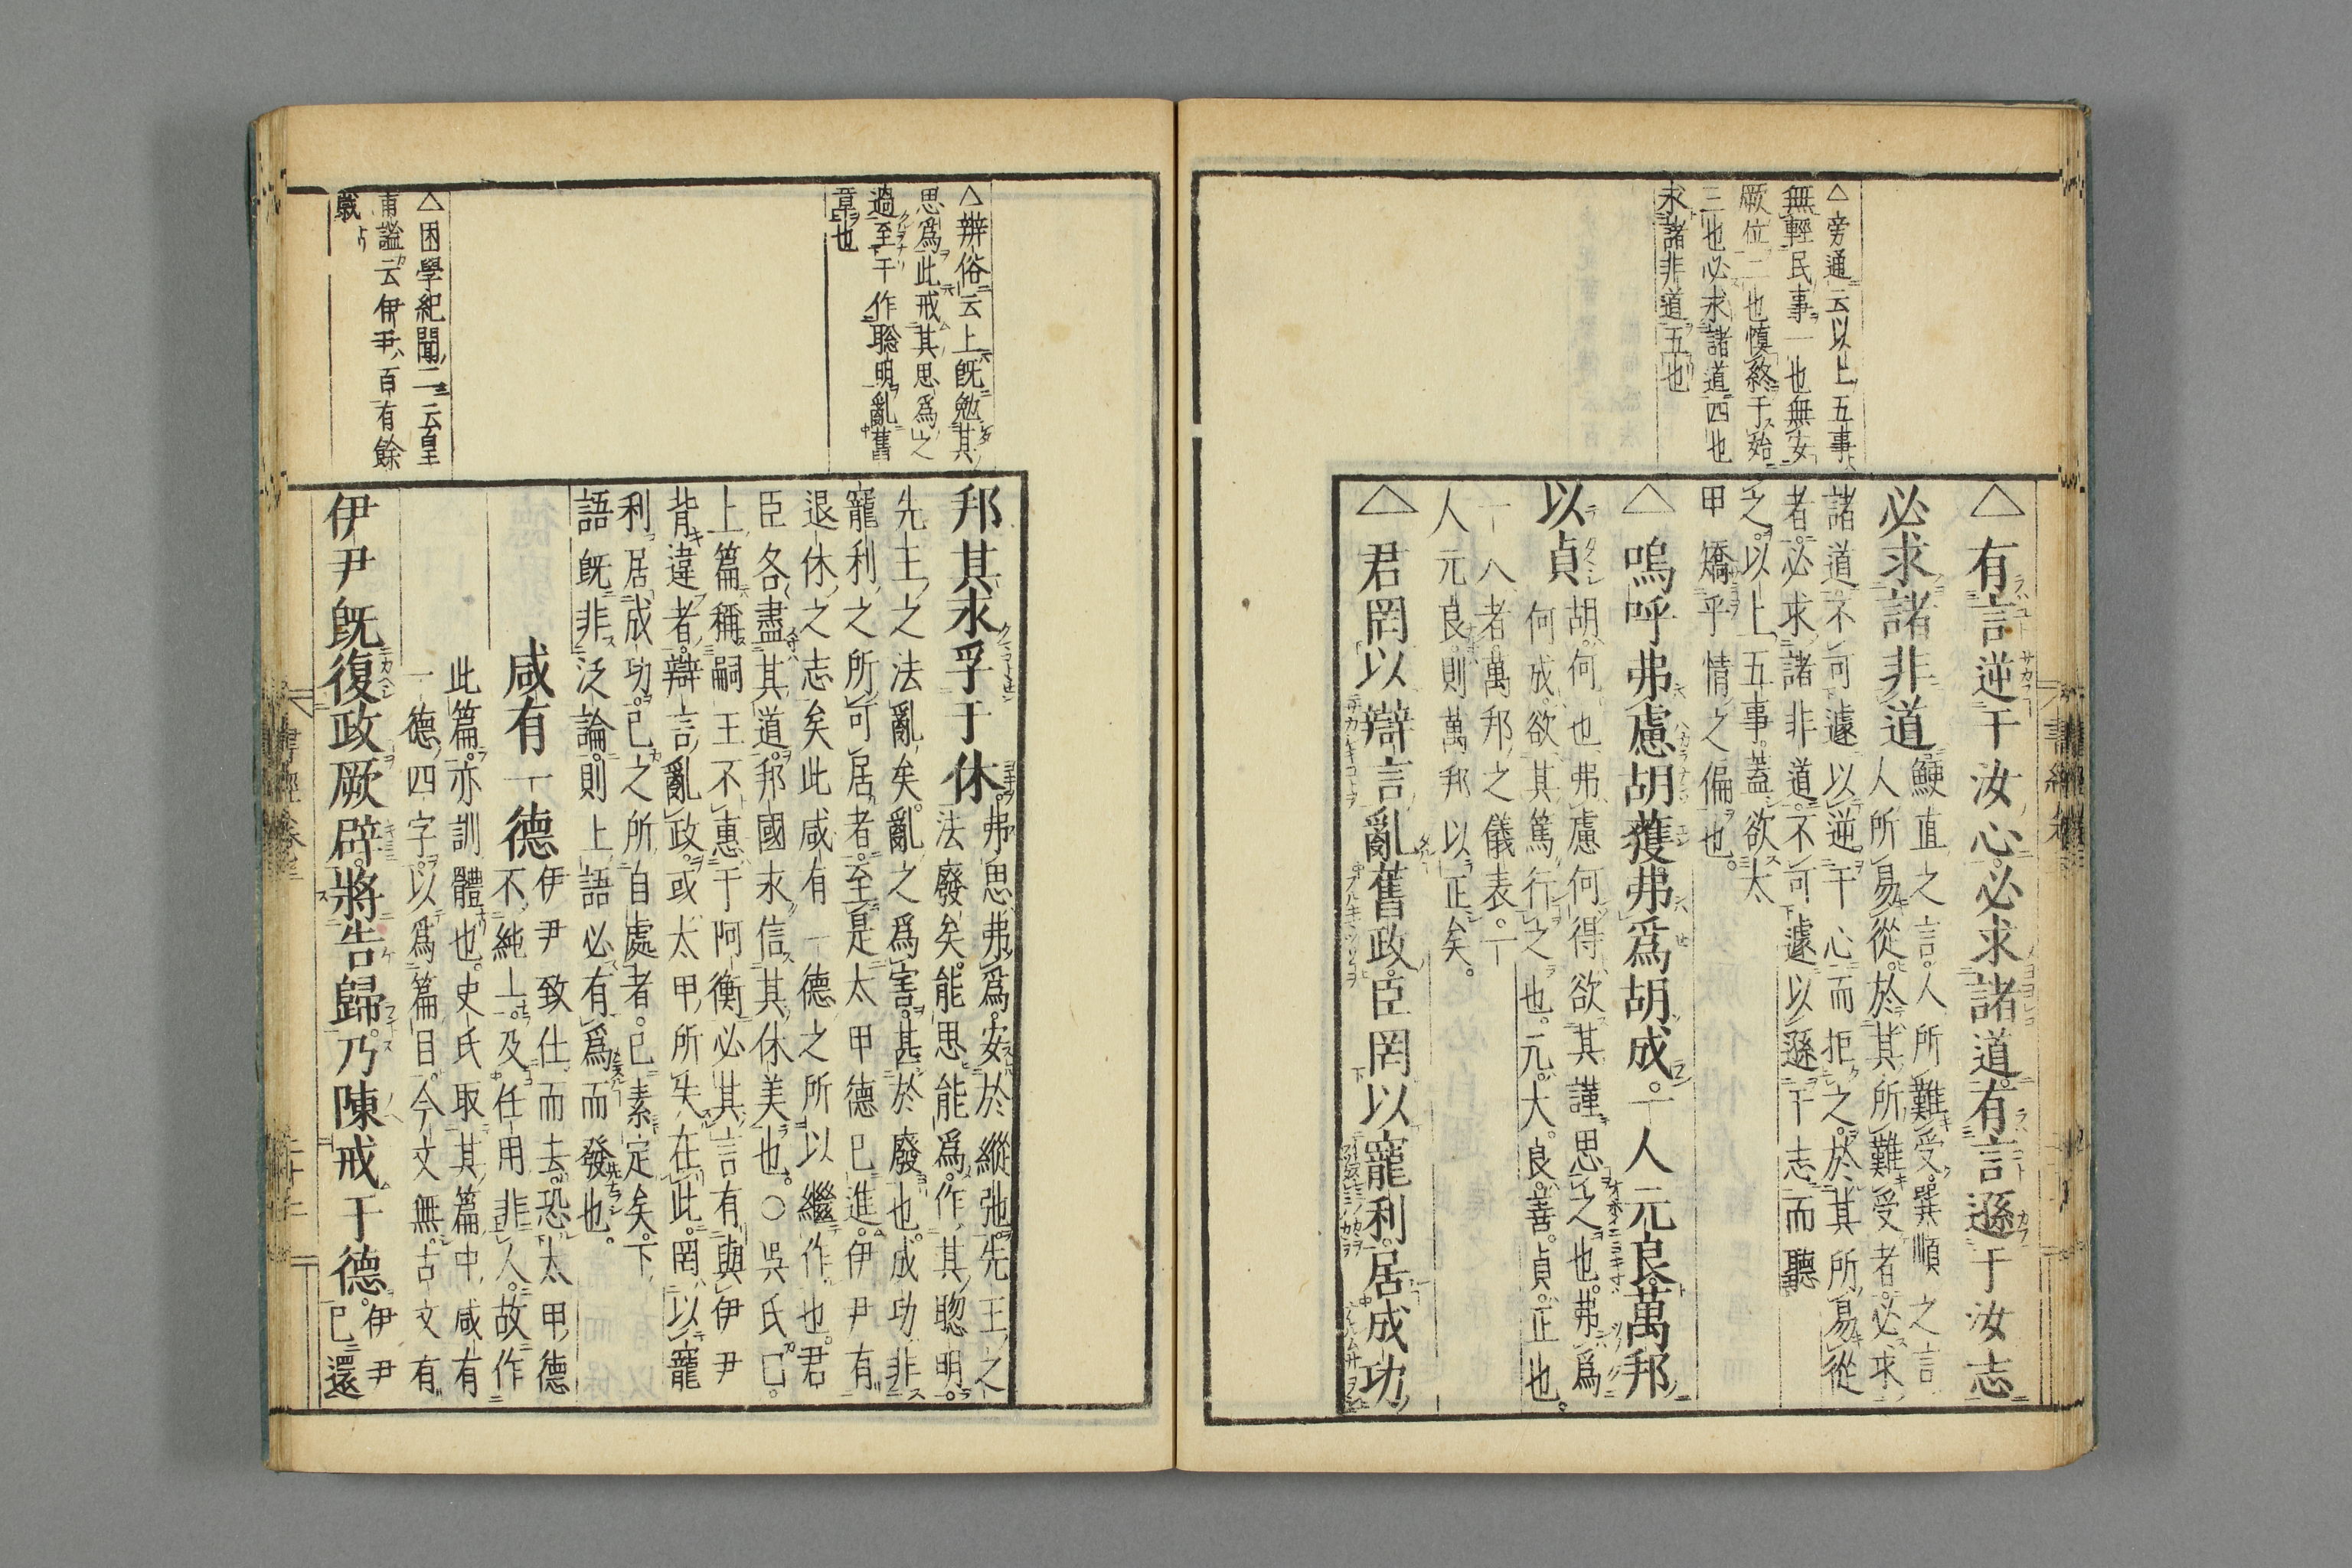 △旁通云以上五事
無輕民事一也無安
厥位二也愼終于始
三也必求諸道四也
求諸非道五也
△有言逆于汝心必求諸道有言遜于汝志
必求諸非道
鯁直之言人所難受巽順之言
人所易從於其所難受者必求
諸道不可遽以逆于心而拒之於其所易從
者必求諸非道不可遽以遜于志而聽
之以上五事蓋欲太
甲矯乎情之偏也
△嗚呼弗慮胡獲弗爲胡成一人元良萬邦
以貞
胡何也弗慮何得欲其謹思之也弗爲
何成欲其篤行之也元大良善貞正也
一人者萬邦之儀表一
人元良則萬邦以正矣
△君罔以辯言亂舊政臣罔以寵利居成功
△辨俗云上旣勉其
思爲此戒其思爲之
過至于作聡明亂舊
章也
邦其永孚于休
弗思弗爲安於縱弛先王之
法廢矣能思能爲作其聦明
先王之法亂矣亂之爲害甚於廢也成功非
寵利之所可居者至是太甲德已進伊尹有
退休之志矣此咸有一德之所以繼作也君
臣各盡其道邦國永信其休美也○吳氏曰
上篇稱嗣王不惠于阿衡必其言有與伊尹
背違者辯言亂政或太甲所失在此罔以寵
利居成功己之所自處者已素定矣下
語旣非泛論則上語必有爲而發也
咸有一德
伊尹致仕而去恐太甲德
不純一及任用非人故作
此篇亦訓體也史氏取其篇中咸有
一德四字以爲篇目今文無古文有
△困學紀聞二云皇
甫謐云伊尹百有餘
歲
伊尹旣復政厥辟將告歸乃陳戒于德
伊尹
已還